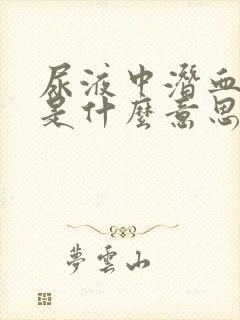 尿液中潛血
是什麼意思
夢雲山